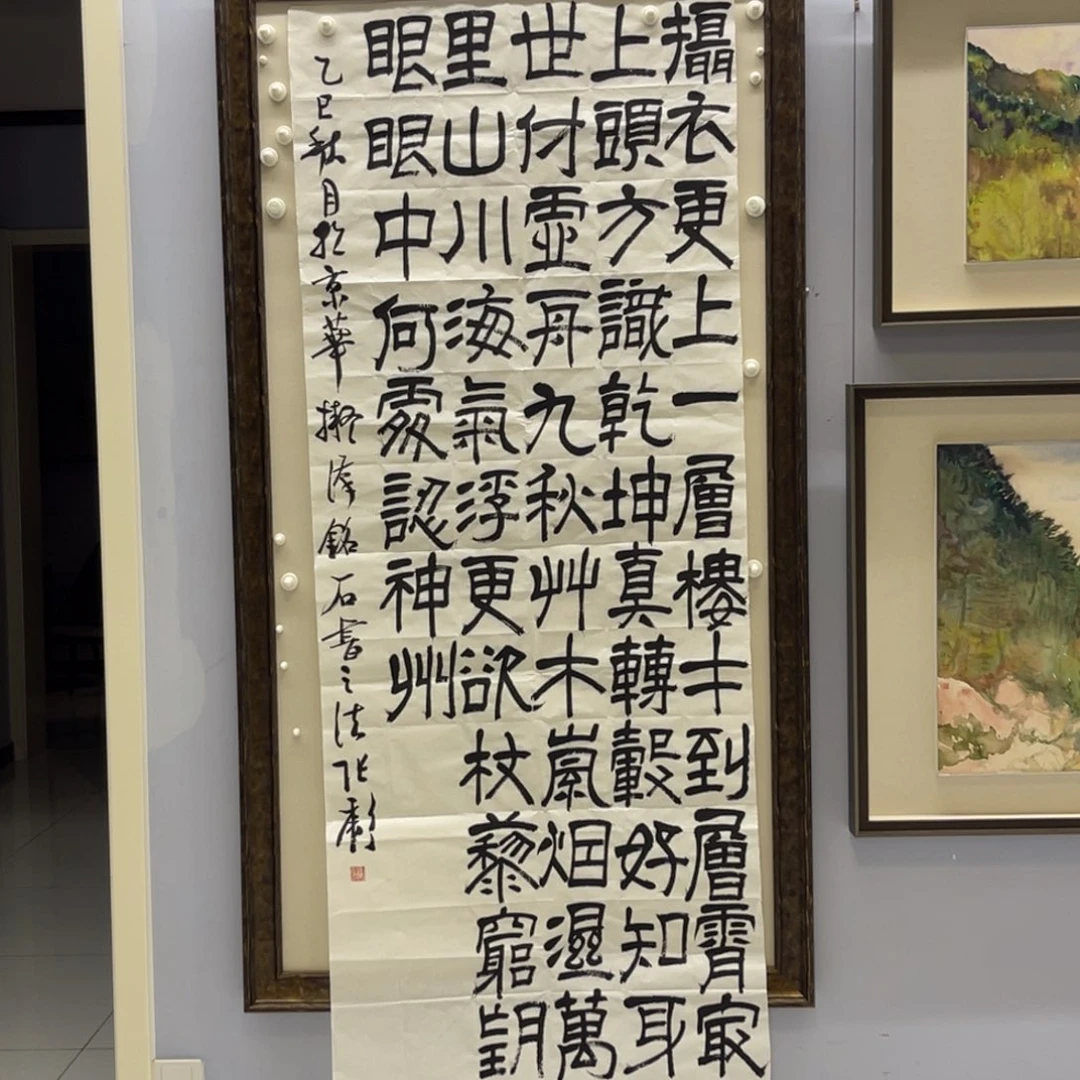 攝衣更上一層樓才到層霄冣
上頭方識乾坤真轉轂好知身
世付虛舟九秋艸木嵐烟濕萬
里山川海氣浮更欲杖藜窮望
眼眼中何處認神州
乙巳秋月於京華擬漢銘石書之法